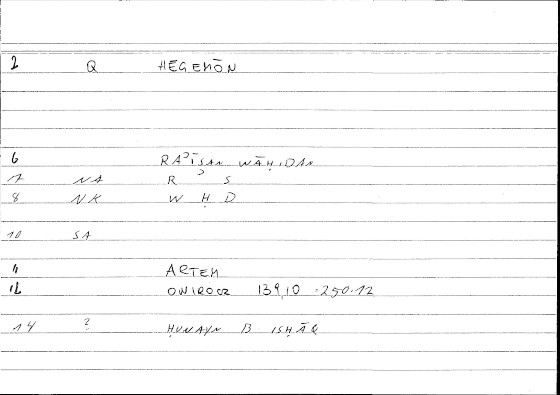 2 Q HEGEMŌN
6 RAʾĪSAN WĀḤIDAN
7 NA R ʾ S
8 NK W Ḥ D
10 SA
11 ARTEM
12 ONIROCR 139,10 - 250.12
14 ? ḤUNAYN B ISḤĀQ